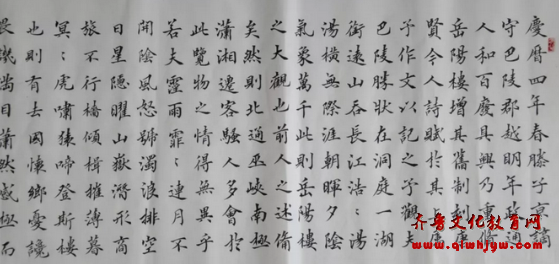 慶曆四年春滕子京謫
守巴陵郡越明年政通
人和百廢具興乃重修
岳陽樓增其舊制刻唐
賢今人詩賦於其上屬
予作文以記之予觀夫
巴陵勝狀在洞庭一湖
銜遠山吞長江浩〻湯
湯橫無際涯朝暉夕陰
氣象萬千此則岳陽樓
之大觀也前人之述備
矣然則北通巫峽南極
瀟湘遷客騷人多會於
此覽物之情得無異乎
若夫霪雨霏〻連月不
開陰風怒號濁浪排空
日星隱曜山嶽潛形商
旅不行檣傾楫摧薄暮
冥〻虎嘯猿啼登斯樓
也則有去國懷鄉憂讒
畏譏滿目蕭然感極而
齐鲁文化教育网